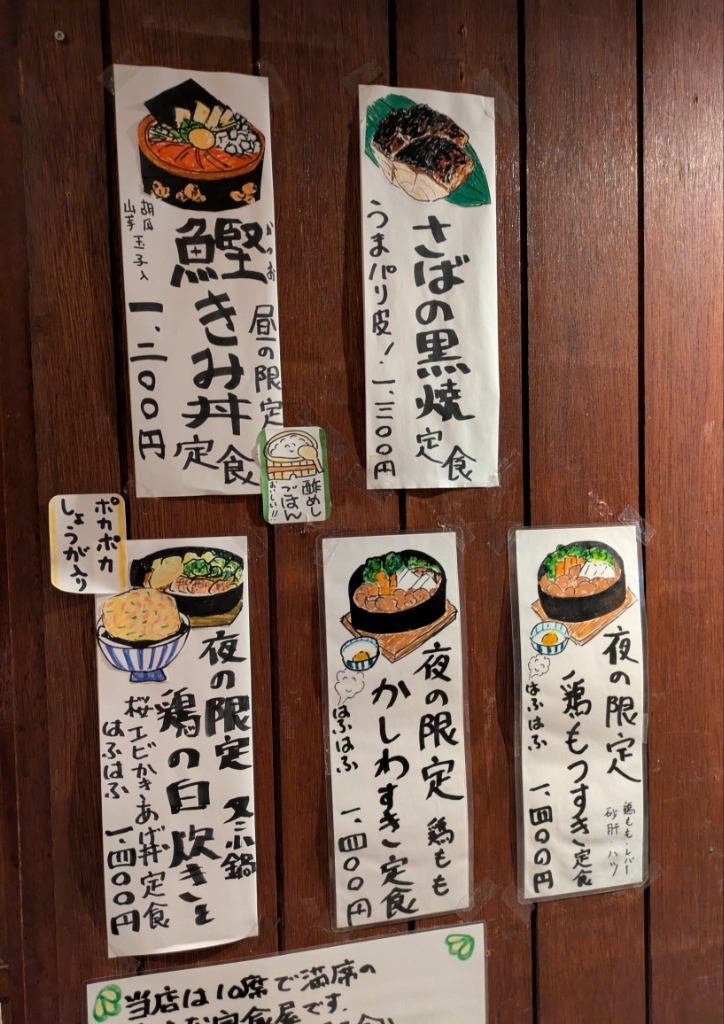 鰹きみ丼定食
がつお
昼の限定
胡瓜玉子入
山芋
一、二〇〇円
酢めし
ごはん
おいしい!!
さばの黒焼定食
うまパリ皮!
一、三〇〇円
ポカポカ
しょうが入り
夜の限定
鶏の白炊きと
ミニ鍋
桜エビかきあげ丼定食
はふはふ
一、四〇〇円
夜の限定
鶏もも
かしわすき定食
はふはふ
一、四〇〇円
夜の限定
鶏もも・レバー
砂肝・ハツ
鶏もつすき定食
はふはふ
一、四〇〇円
当店は10席で満席の
定食屋です.